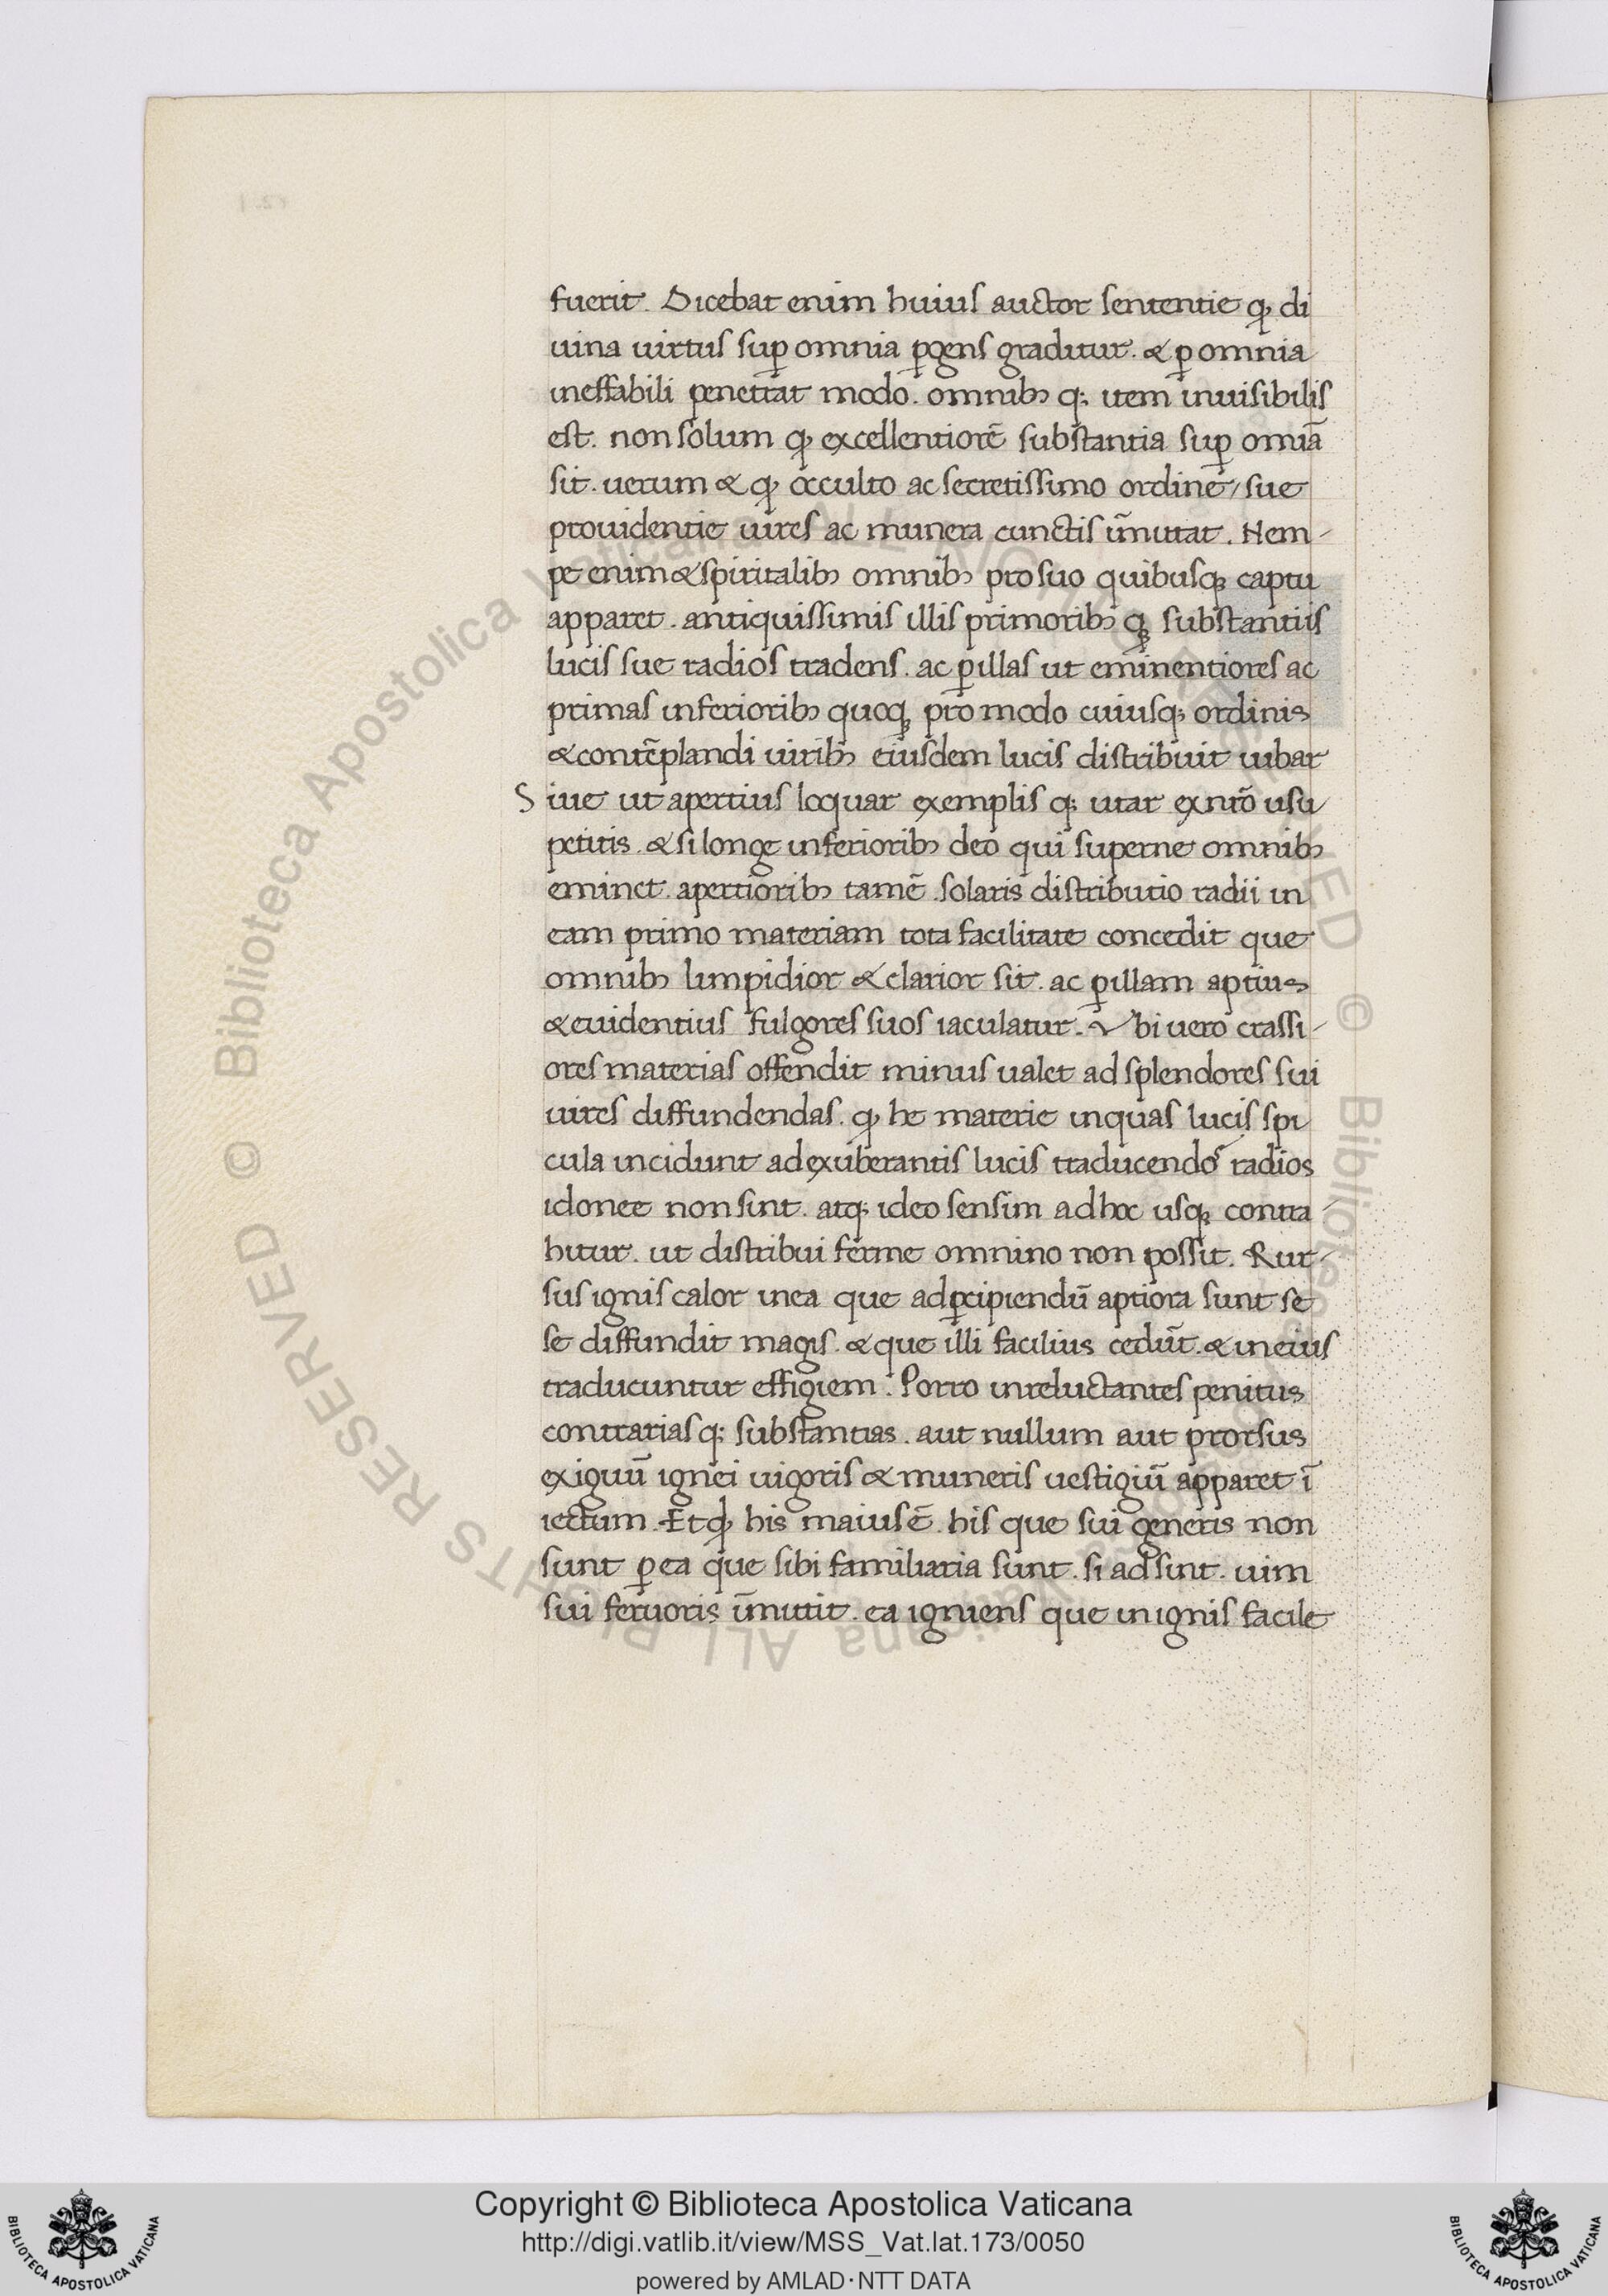 fuerit. Dicebat enim huius auctor sententie ꝙ di
uina uirtus suꝑ omnia ꝑgens graditur. & ꝑ omnia
ineffabili penetrat modo. omnibꝫ q; item inuisibilis
est. non solum ꝙ excellentiorē substantia suꝑ omīa
sit. uerum & ꝙ occulto ac secretissimo ordine / sue
prouidentie uires ac munera cunctis īmittat. Nem-
pe enim & spiritalibꝫ omnibꝫ pro suo quibusqꝫ captu
apparet. antiquissimis illis primoribꝫ qꝫ substantiis
lucis sue radios tradens. ac ꝑ illas ut eminentiores ac
primas inferioribꝫ quoqꝫ pro modo cuiusq; ordinis
& contēplandi uiribꝫ eiusdem lucis distribuit iubar
S iue ut apertius loquar exemplis q; utar ex nrō usu
petitis. & si longe inferioribꝫ deo qui superne omnibꝫ
eminet. apertioribꝫ tamē. solaris distributio radii in
eam primo materiam tota facilitate concedit que
omnibꝫ limpidior & clarior sit. ac ꝑ illam aptius
& euidentius fulgores suos iaculatur. Vbi uero crassi-
ores materias offendit minus ualet ad splendores sui
uires diffundendas. ꝙ he materie in quas lucis spi
cula incidunt ad exuberantis lucis traducendos radios
idonee non sint. atq; ideo sensim ad hoc usqꝫ contra-
hitur. ut distribui ferme omnino non possit. Rur-
sus ignis calor in ea que ad ꝑcipiendū aptiora sunt se
se diffundit magis. & que illi facilius cedūt. & in eius
traducuntur effigiem. Porro in reluctantes penitus
contrarias q; substantias. aut nullum aut prorsus
exiguū ignei uigoris & muneris uestigiū apparet ī
iectum. Et ꝙ his maius ē. his que sui generis non
sunt ꝑ ea que sibi familiaria sunt. si adsint. uim
sui feruoris īmittit. ea igniens que in ignis facile
© Biblioteca Apostolica Vaticana ALL RIGHTS RESERVED
© Biblioteca Apostolica Vaticana ALL RIGHTS RESERVED
Copyright © Biblioteca Apostolica Vaticana
http://digi.vatlib.it/view/MSS_Vat.lat.173/0050
powered by AMLAD·NTT DATA
BIBLIOTECA APOSTOLICA VATICANA
BIBLIOTECA APOSTOLICA VATICANA